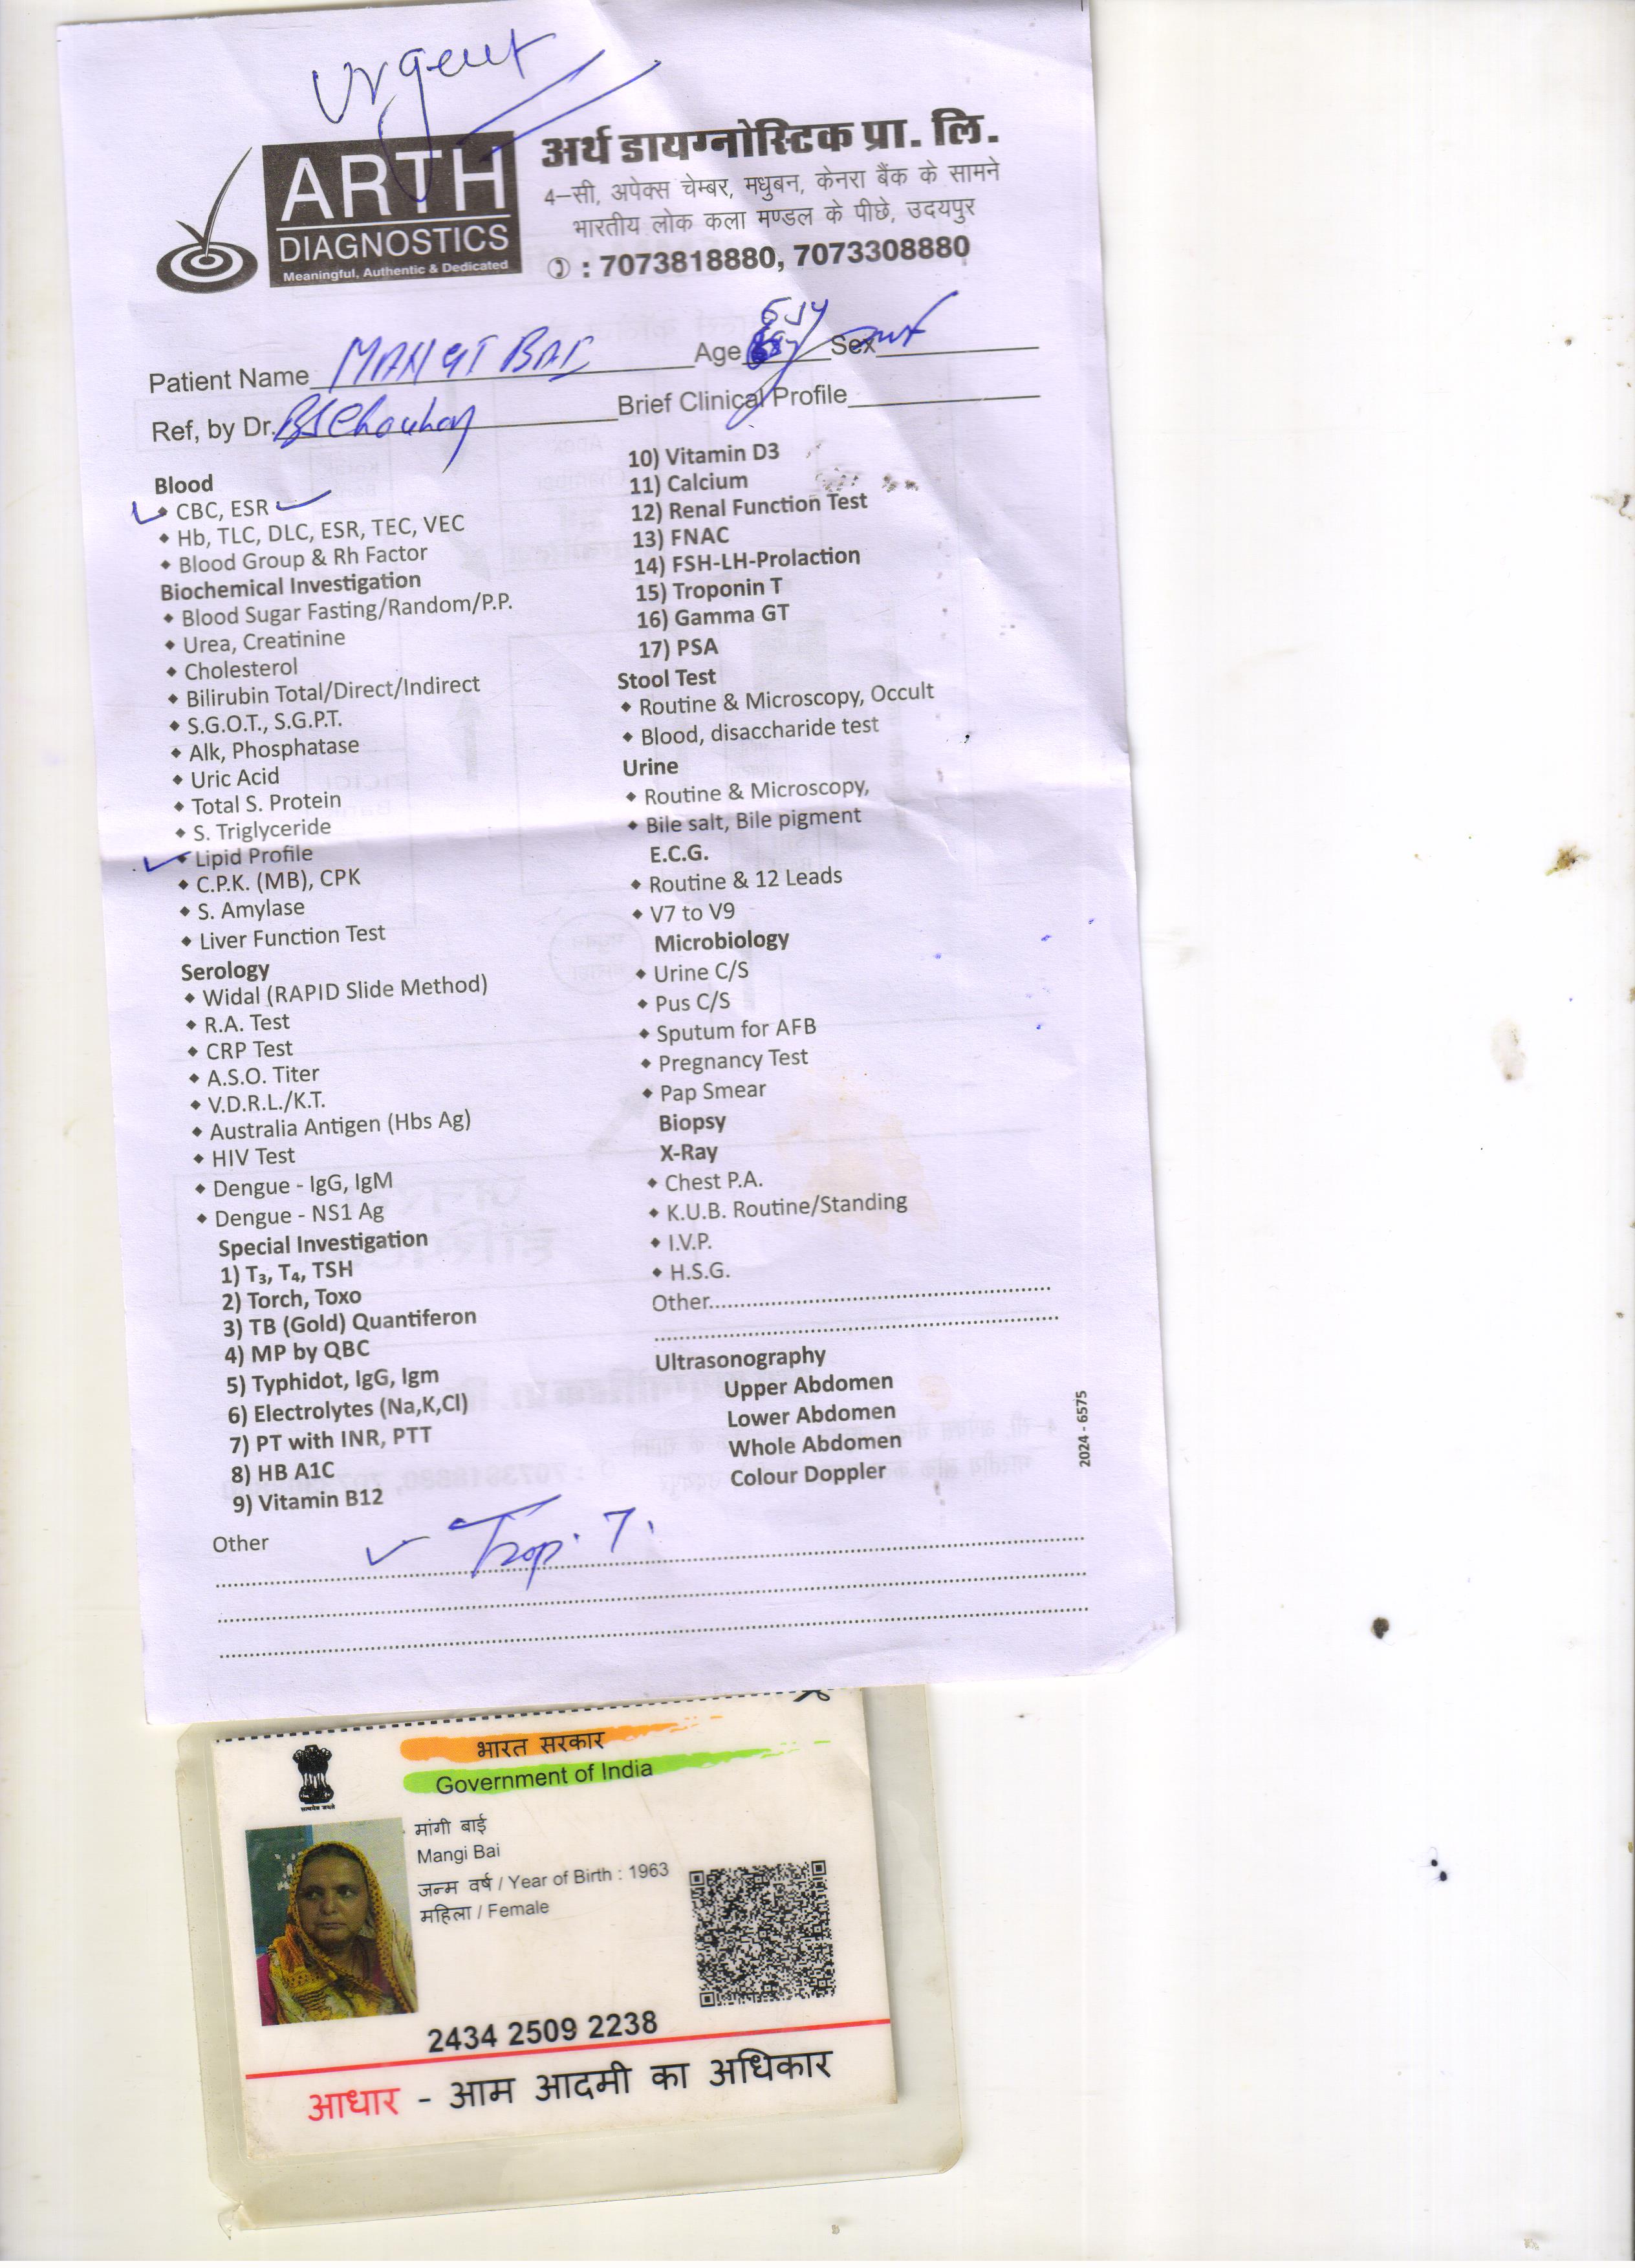 Urgent
ARTH
DIAGNOSTICS
Meaningful, Authentic & Dedicated
अर्थ डायग्नोस्टिक प्रा. लि.
4–सी, अपेक्स चेम्बर, मधुबन, केनरा बैंक के सामने
भारतीय लोक कला मण्डल के पीछे, उदयपुर
: 7073818880, 7073308880
Patient Name MANGI BAI Age Sex
Ref, by Dr. BS Chouhan Brief Clinical Profile
Blood
CBC, ESR
Hb, TLC, DLC, ESR, TEC, VEC
Blood Group & Rh Factor
Biochemical Investigation
Blood Sugar Fasting/Random/P.P.
Urea, Creatinine
Cholesterol
Bilirubin Total/Direct/Indirect
S.G.O.T., S.G.P.T.
Alk, Phosphatase
Uric Acid
Total S. Protein
S. Triglyceride
Lipid Profile
C.P.K. (MB), CPK
S. Amylase
Liver Function Test
Serology
Widal (RAPID Slide Method)
R.A. Test
CRP Test
A.S.O. Titer
V.D.R.L./K.T.
Australia Antigen (Hbs Ag)
HIV Test
Dengue - IgG, IgM
Dengue - NS1 Ag
Special Investigation
1) T₃, T₄, TSH
2) Torch, Toxo
3) TB (Gold) Quantiferon
4) MP by QBC
5) Typhidot, IgG, Igm
6) Electrolytes (Na,K,Cl)
7) PT with INR, PTT
8) HB A1C
9) Vitamin B12
10) Vitamin D3
11) Calcium
12) Renal Function Test
13) FNAC
14) FSH-LH-Prolaction
15) Troponin T
16) Gamma GT
17) PSA
Stool Test
Routine & Microscopy, Occult
Blood, disaccharide test
Urine
Routine & Microscopy,
Bile salt, Bile pigment
E.C.G.
Routine & 12 Leads
V7 to V9
Microbiology
Urine C/S
Pus C/S
Sputum for AFB
Pregnancy Test
Pap Smear
Biopsy
X-Ray
Chest P.A.
K.U.B. Routine/Standing
I.V.P.
H.S.G.
Other
Ultrasonography
Upper Abdomen
Lower Abdomen
Whole Abdomen
Colour Doppler
2024 - 6575
Other
Trop. T.
भारत सरकार
Government of India
सत्यमेव जयते
मांगी बाई
Mangi Bai
जन्म वर्ष / Year of Birth : 1963
महिला / Female
2434 2509 2238
आधार - आम आदमी का अधिकार